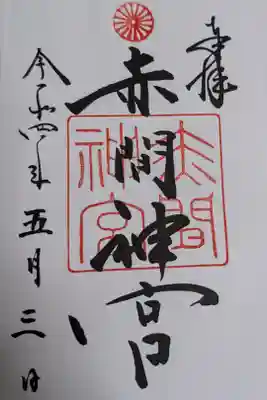 奉拝
赤間神宮
赤間神宮
令和四年五月三日